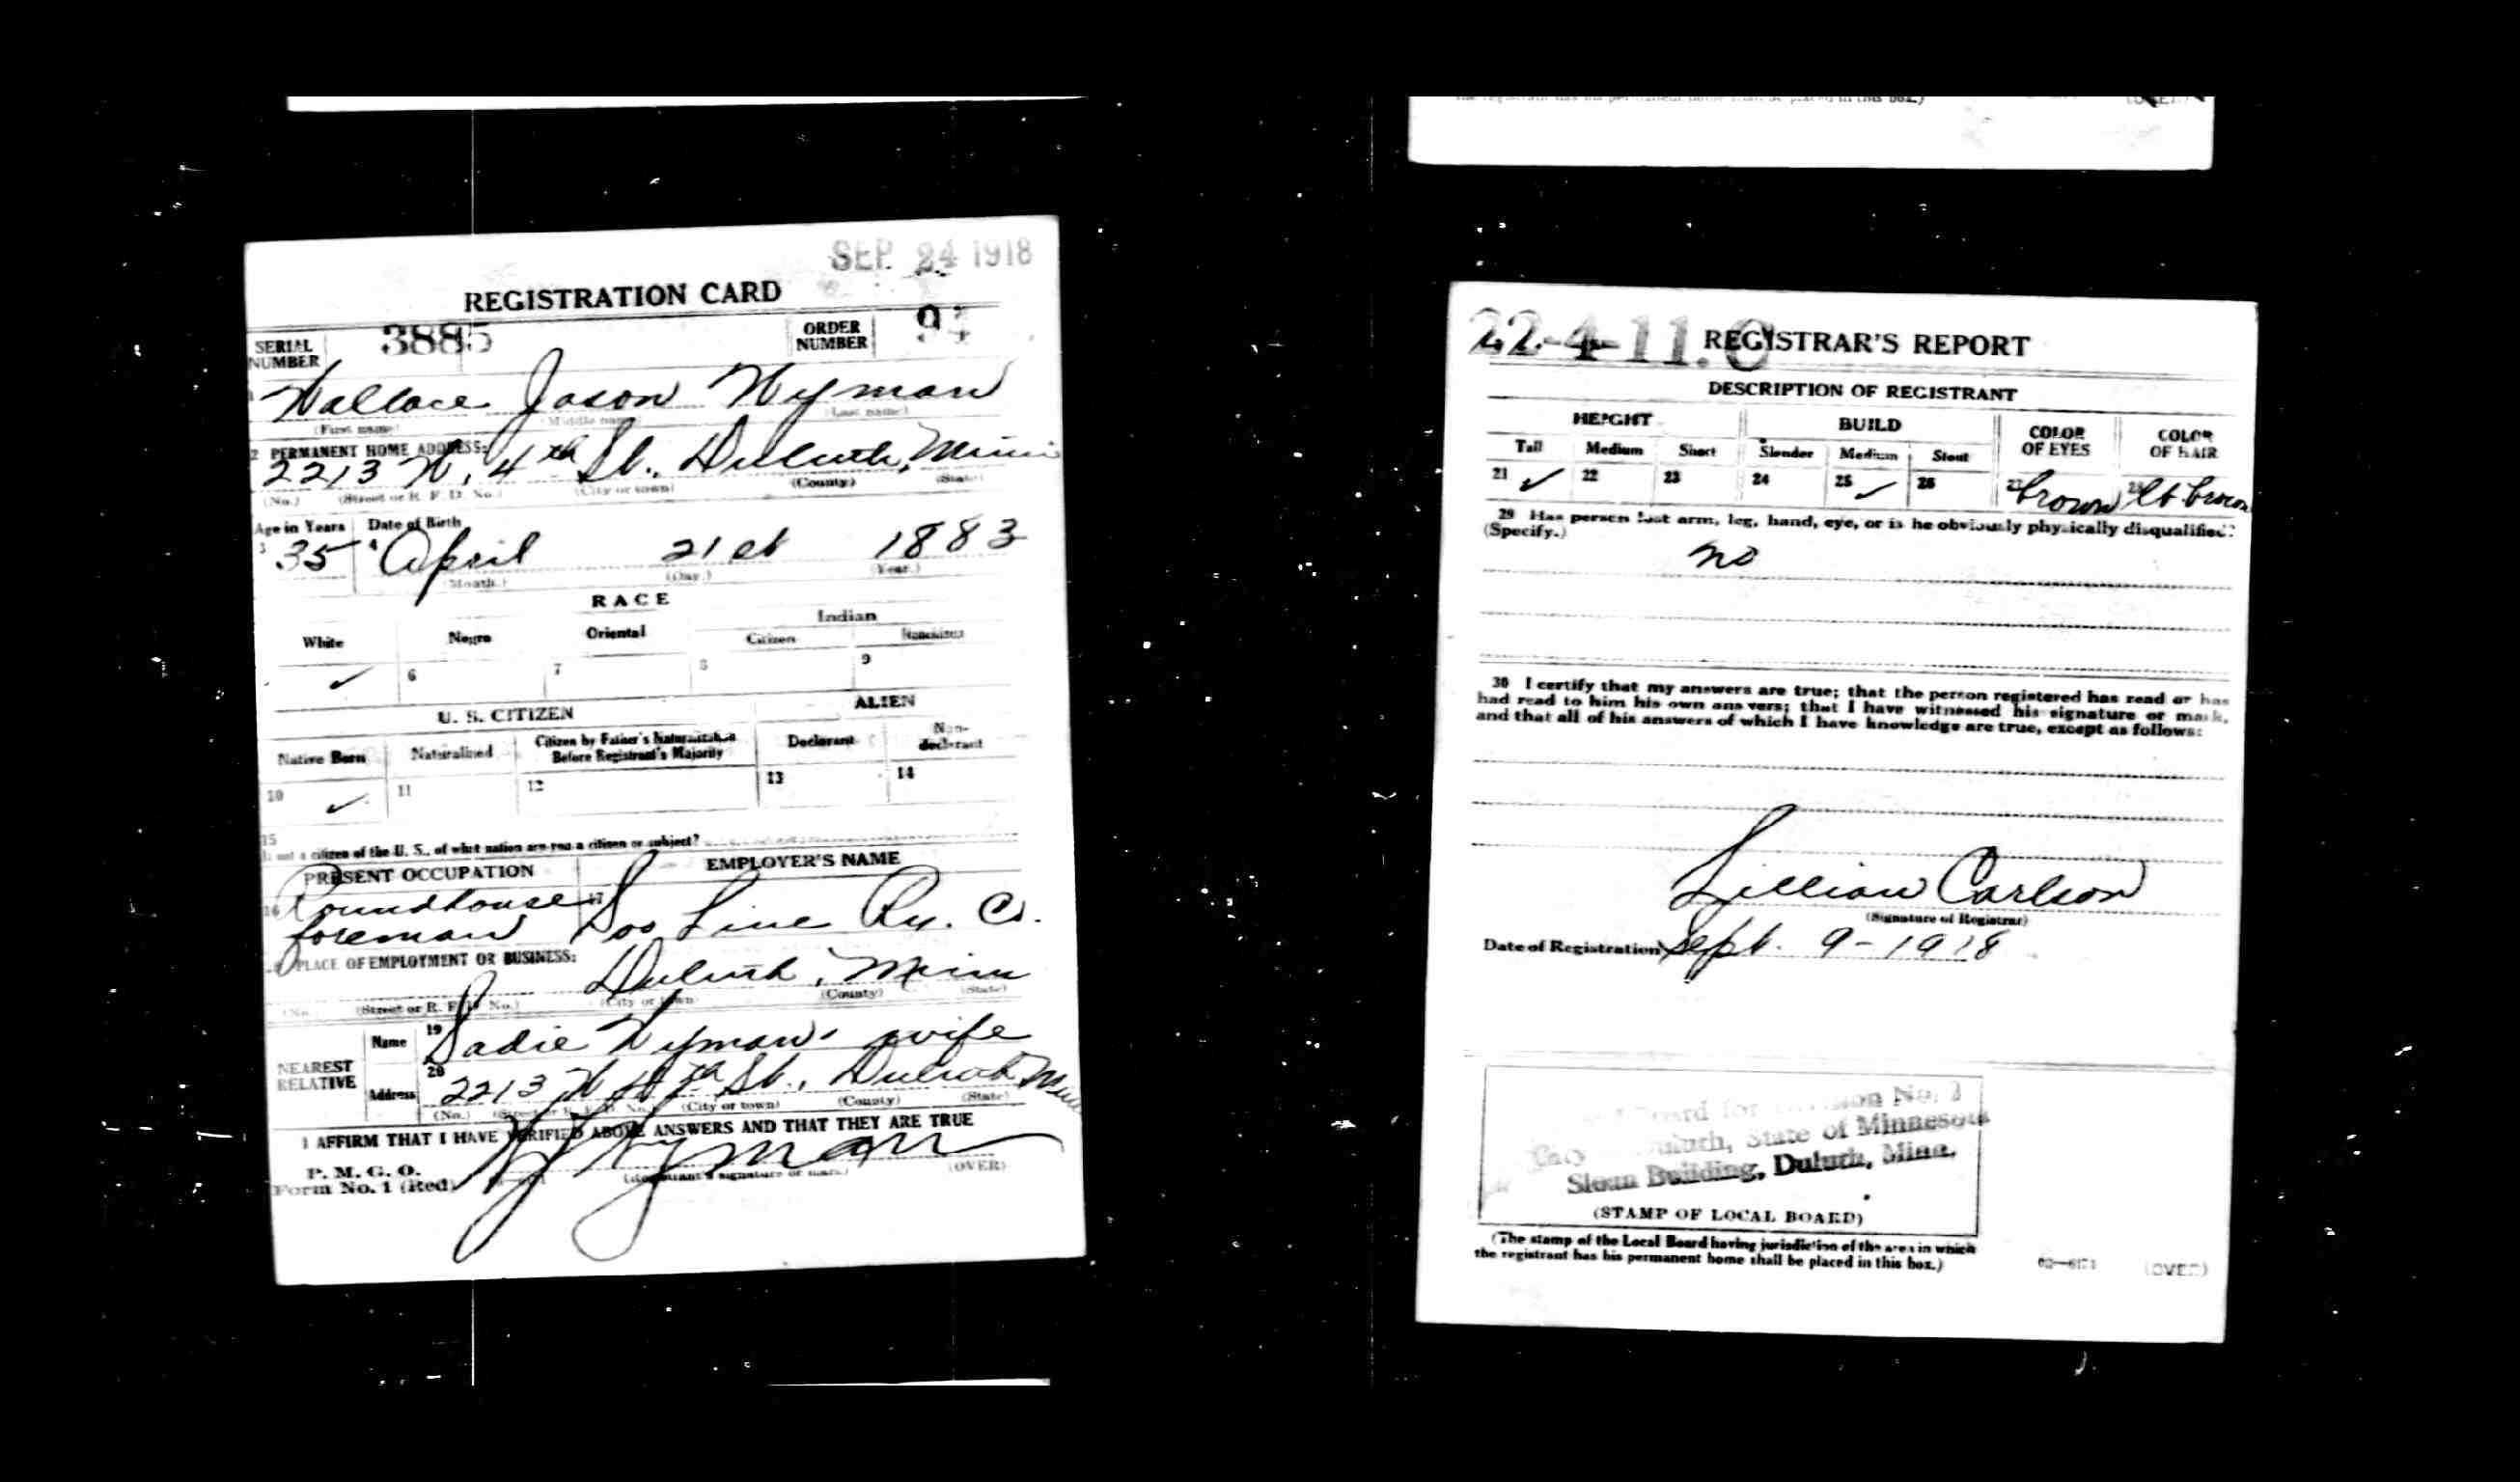 SEP. 24 1918
REGISTRATION CARD
SERIAL NUMBER 3885 ORDER NUMBER
Wallace Jason Wyman
(First name) (Middle name) (Last name)
2 PERMANENT HOME ADDRESS:
2213 W. 4th St. Duluth, Minn
(No.) (Street or R. F. D. No.) (City or town) (County) (State)
Age in Years Date of Birth
3 35 4 April 21st 1883
(Month.) (Day.) (Year.)
RACE
White Negro Oriental Indian
Citizen Noncitizen
✓ 6 7 8 9
U. S. CITIZEN ALIEN
Native Born Naturalized Citizen by Father's Naturalization Before Registrant's Majority Declarant Non-declarant
10 ✓ 11 12 13 14
15
If not a citizen of the U. S., of what nation are you a citizen or subject?
PRESENT OCCUPATION EMPLOYER'S NAME
16 Roundhouse foreman 17 Soo Line Ry. Co.
PLACE OF EMPLOYMENT OR BUSINESS:
Duluth, Minn
(No.) (Street or R. F. D. No.) (City or town) (County) (State)
NEAREST RELATIVE
Name 19 Sadie Wyman, wife
Address 20 2213 W 4th St., Duluth Minn
(No.) (Street or R. F. D. No.) (City or town) (County) (State)
I AFFIRM THAT I HAVE VERIFIED ABOVE ANSWERS AND THAT THEY ARE TRUE
P. M. G. O.
Form No. 1 (Red) W J Wyman
(Registrant's signature or mark) (OVER)
22-4-11. C REGISTRAR'S REPORT
DESCRIPTION OF REGISTRANT
HEIGHT BUILD COLOR OF EYES COLOR OF HAIR
Tall Medium Short Slender Medium Stout
21 ✓ 22 23 24 25 ✓ 26 27 brown 28 lt brown
29 Has person lost arm, leg, hand, eye, or is he obviously physically disqualified?
(Specify.)
no
30 I certify that my answers are true; that the person registered has read or has
had read to him his own answers; that I have witnessed his signature or mark,
and that all of his answers of which I have knowledge are true, except as follows:
Lillian Carlson
(Signature of Registrar)
Date of Registration Sept. 9-1918
Board for Division No.
Duluth, State of Minnesota
Sloan Building, Duluth, Minn.
(STAMP OF LOCAL BOARD)
(The stamp of the Local Board having jurisdiction of the area in which
the registrant has his permanent home shall be placed in this box.)
(OVER)